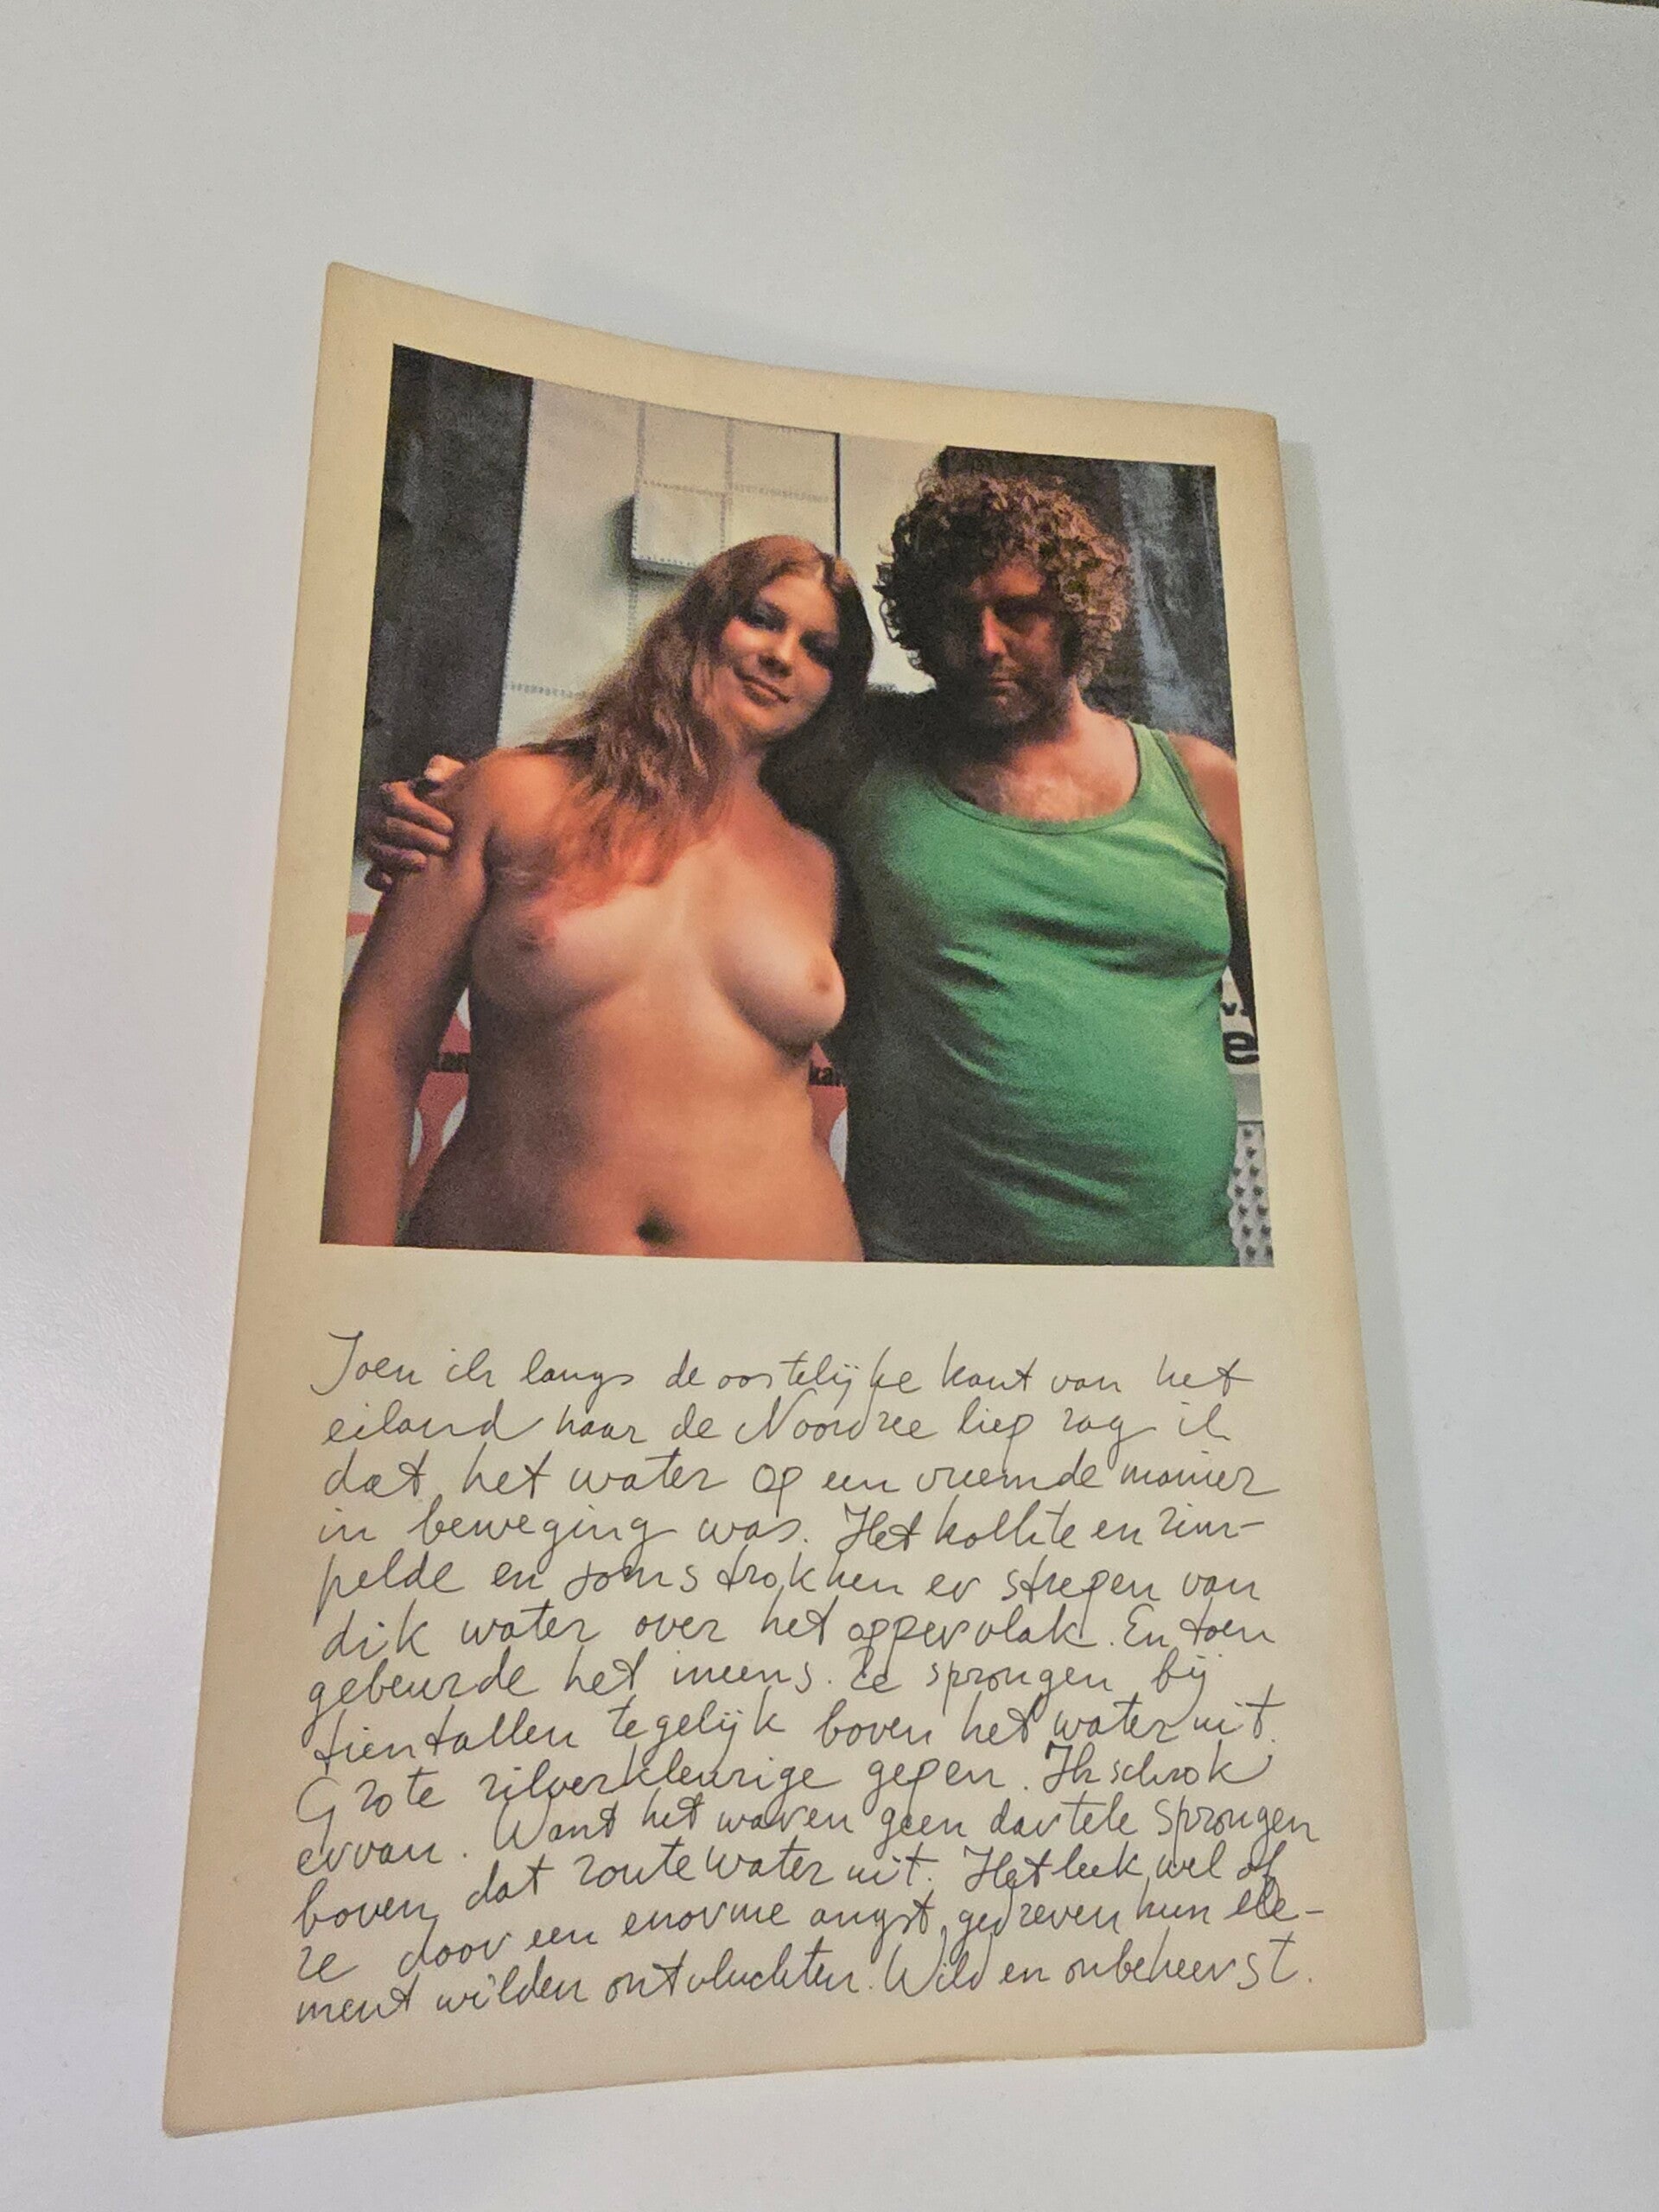 kar
kar
e
Toen ik langs de oostelijke kant van het
eiland naar de Noordzee liep zag ik
dat het water op een vreemde manier
in beweging was. Het kolkte en rim-
pelde en soms trokken er strepen van
dik water over het oppervlak. En toen
gebeurde het ineens. Ze sprongen bij
tientallen tegelijk boven het water uit.
Grote zilverkleurige gepen. Ik schrok
ervan. Want het waren geen dartele sprongen
boven dat zoute water uit. Het leek wel of
ze door een enorme angst gedreven hun ele-
ment wilden ontvluchten. Wild en onbeheerst.